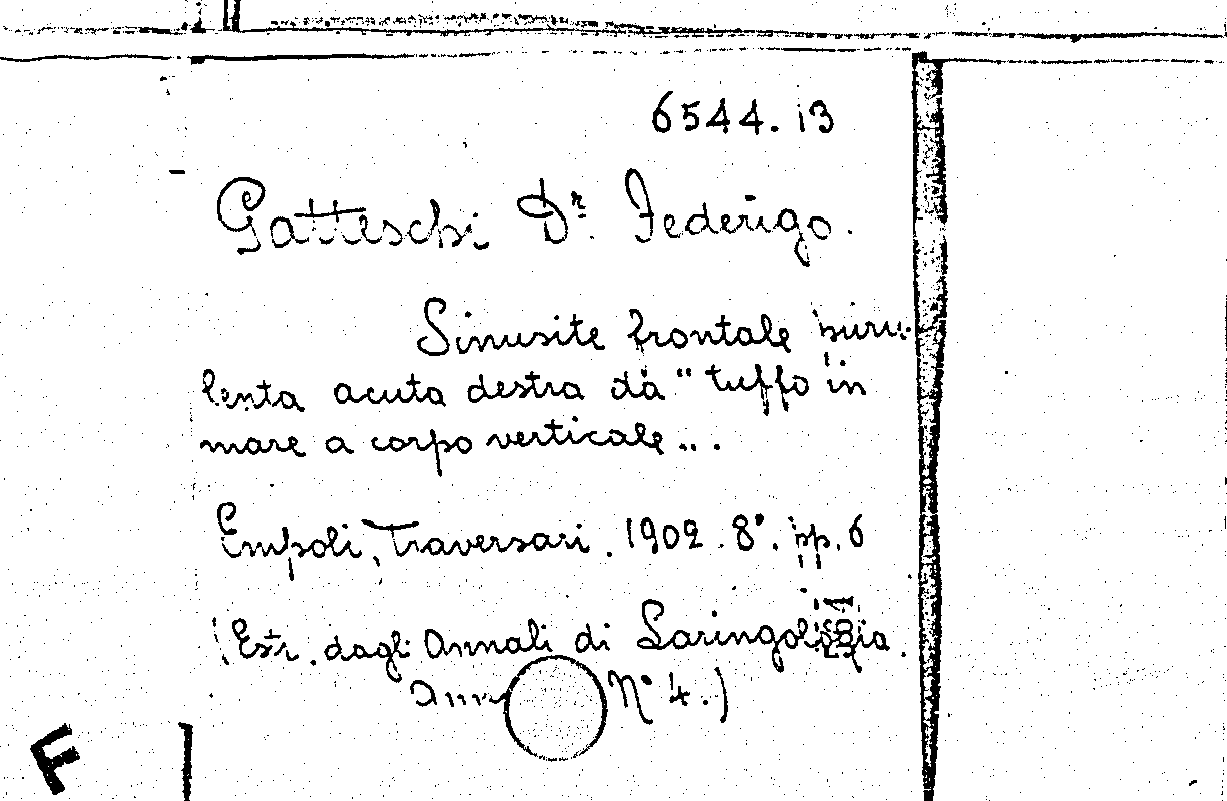 6544.13
Gatteschi Dr. Federigo.
Sinusite frontale puru-
lenta acuta destra da "tuffo in
mare a corpo verticale„.
Empoli, Traversari. 1902. 8°. pp. 6
(Estr. dagli Annali di Laringologia.
N° 4.)
F